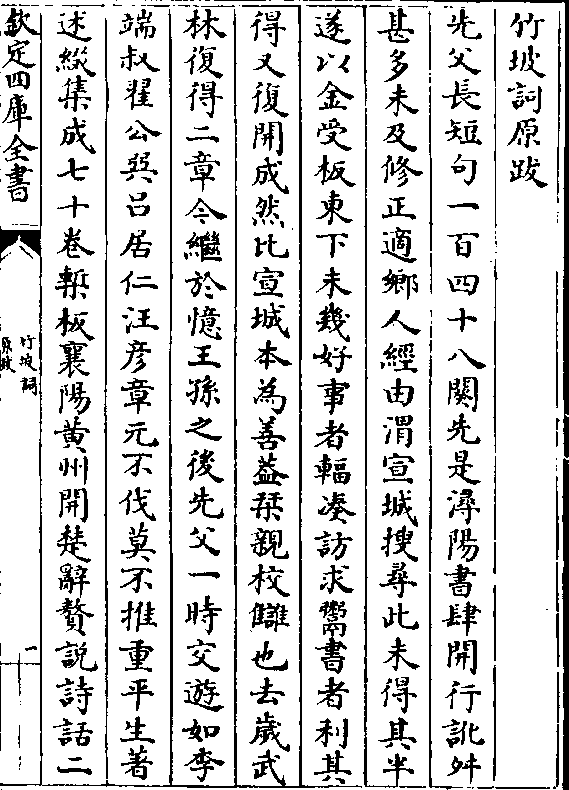 竹坡詞原跋
先父長短句一百四十八闋先是潯陽書肆開行訛舛
甚多未及修正適鄉人經由渭宣城搜尋此未得其半
遂以金受板東下未幾好事者輻湊訪求鬻書者利其
得又復開成然比宣城本為善葢栞親校讎也去歲武
林復得二章今繼於憶王孫之後先父一時交遊如李
端叔翟公巽呂居仁汪彦章元不伐莫不推重平生著
述緫集成七十卷槧板襄陽黃州開楚辭贅説詩話二
欽定四庫全書
竹坡詞
原跋
一